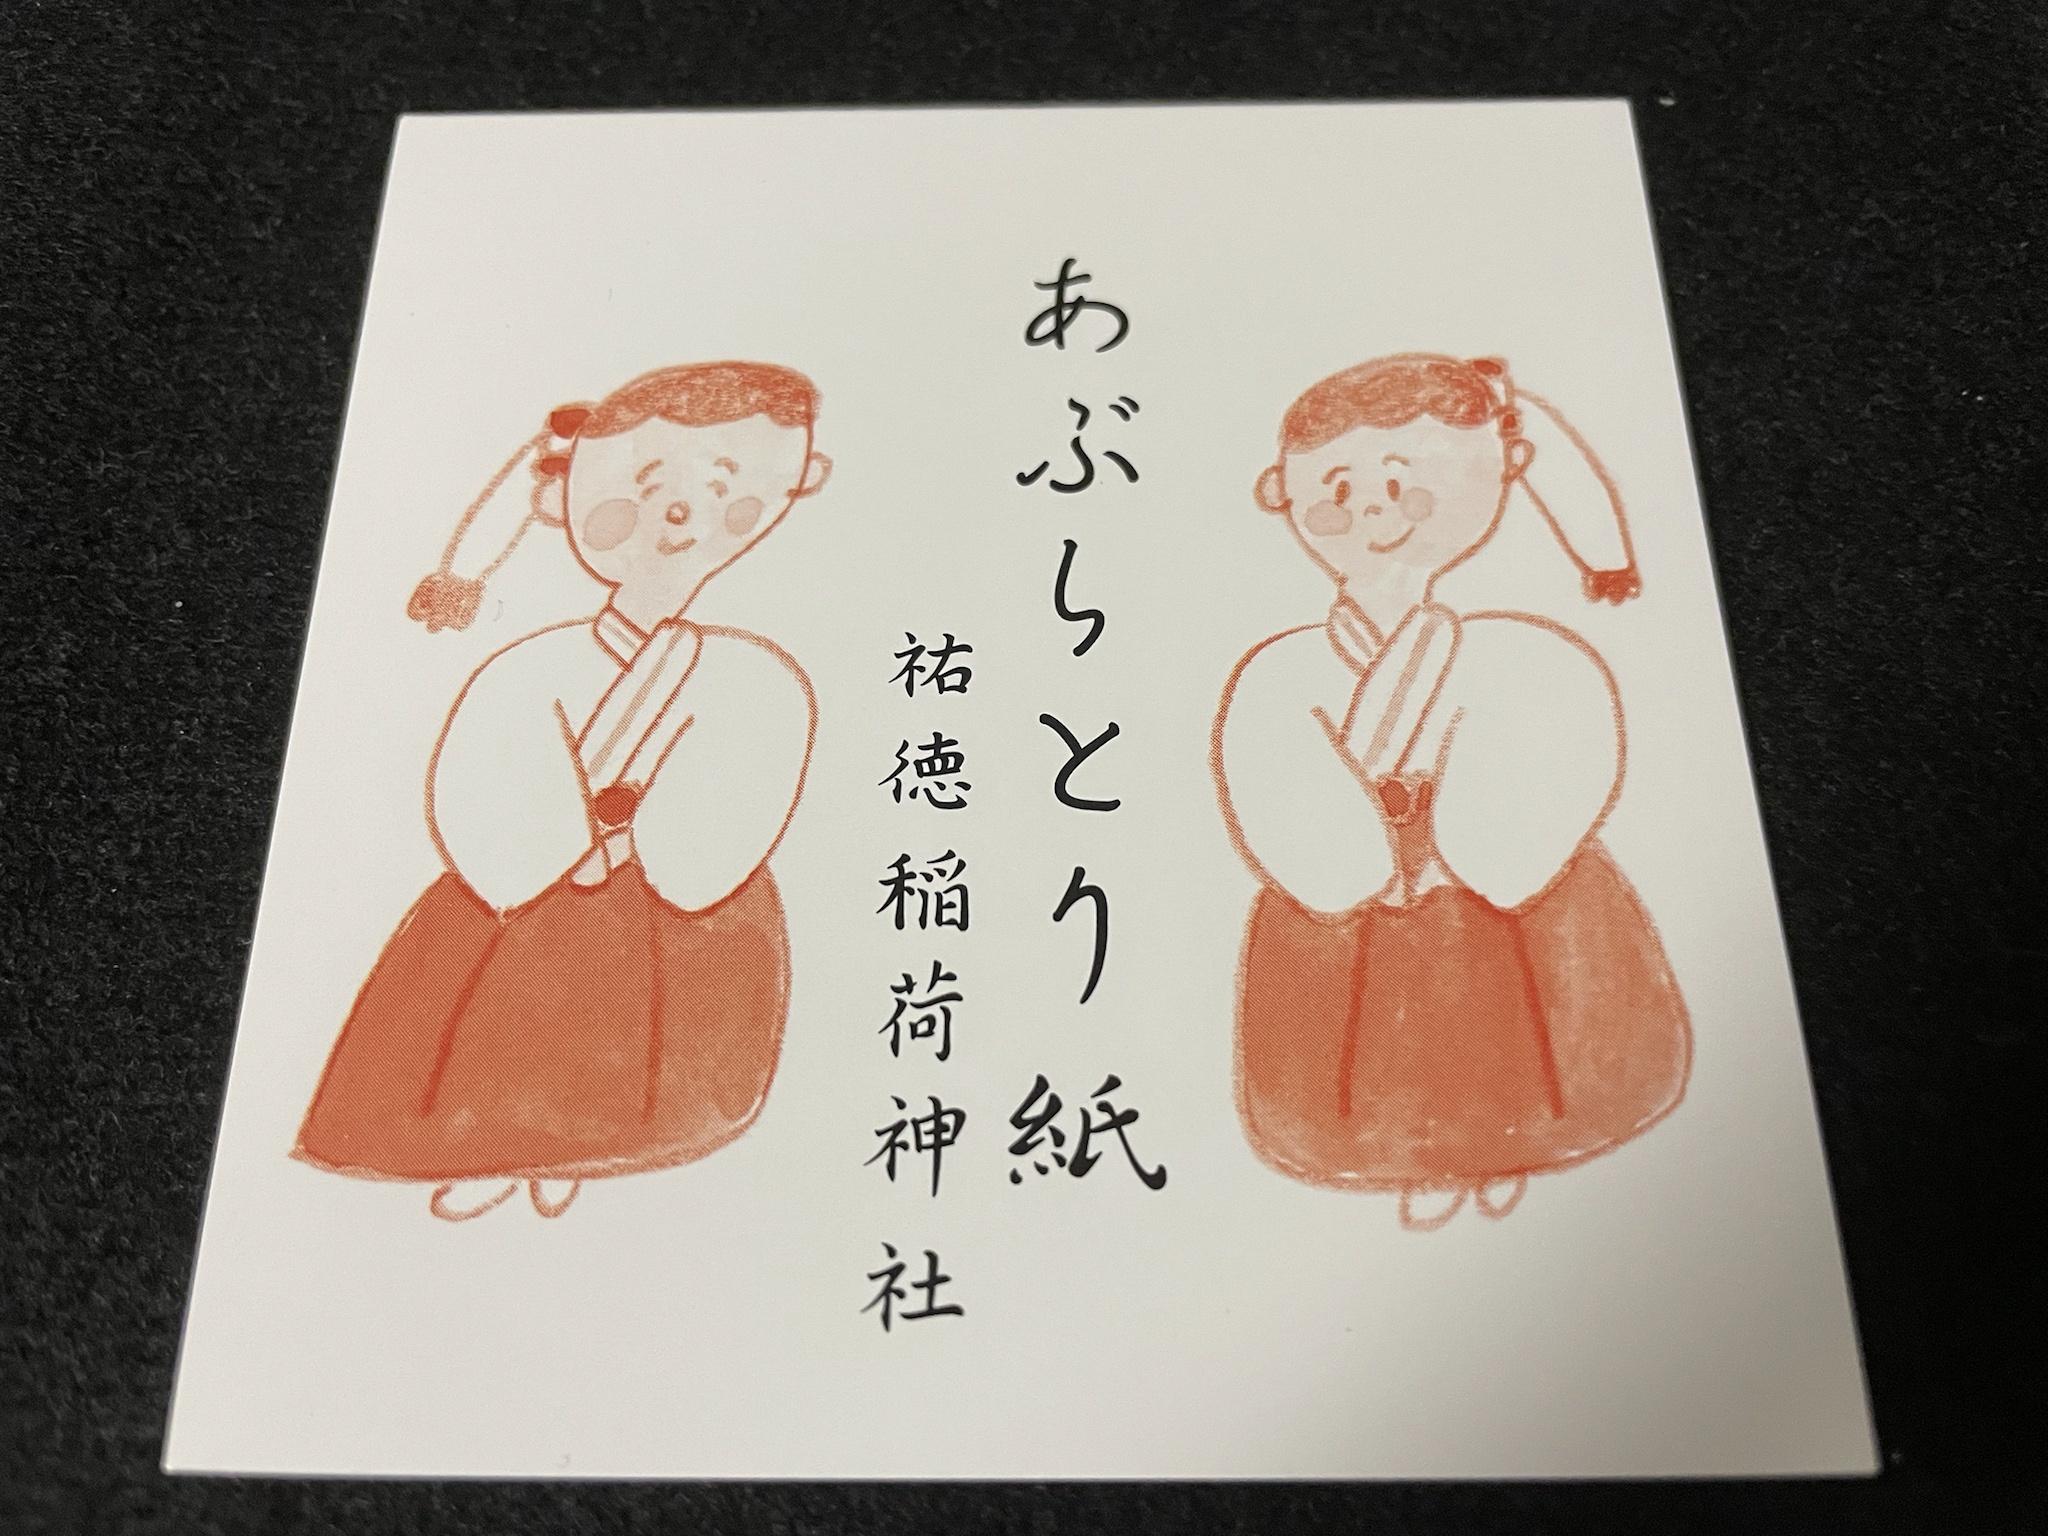 あぶらとり紙
祐徳稲荷神社